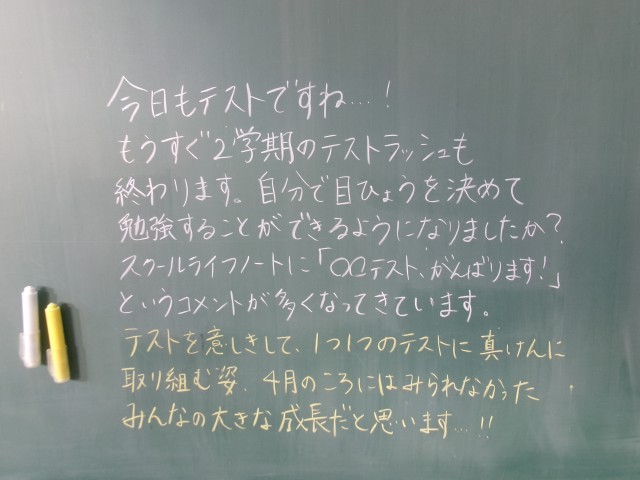 今日もテストですね…!
もうすぐ2学期のテストラッシュも
終わります。自分で目ひょうを決めて
勉強することができるようになりましたか?
スクールライフノートに「〇〇テスト、がんばります!」
というコメントが多くなってきています。
テストを意しきして、1つ1つのテストに真けんに
取り組む姿、4月のころにはみられなかった
みんなの大きな成長だと思います…!!